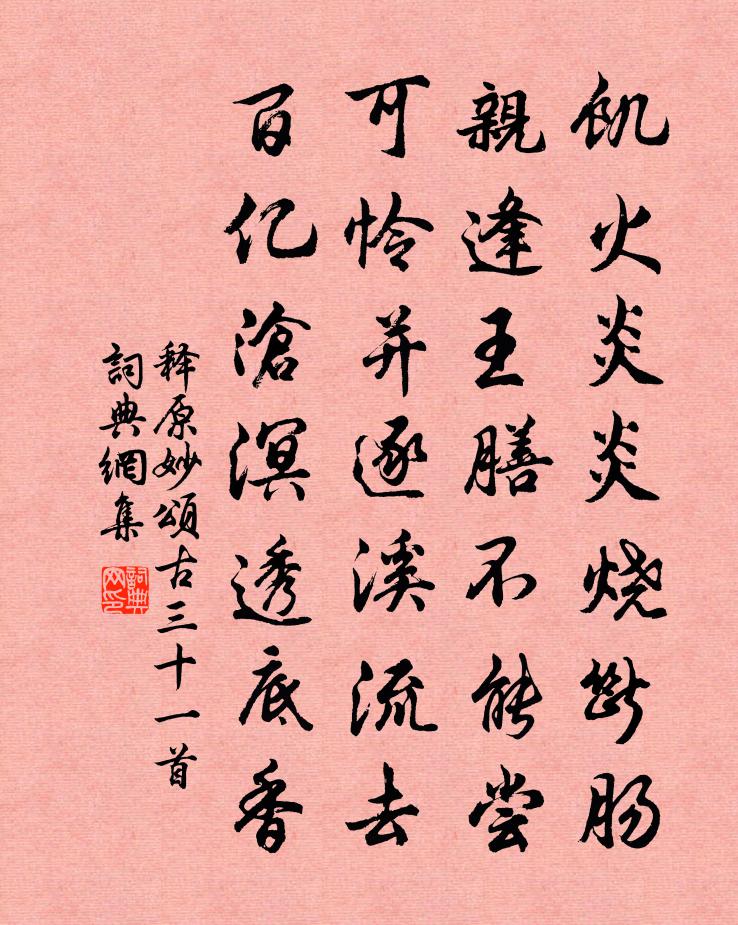 飢火炎炎烧斷肠
親逢王膳不能尝
可怜并逐溪流去
百亿滄溟透底香
释原妙頌古三十一首
詞典網集
詞典网印